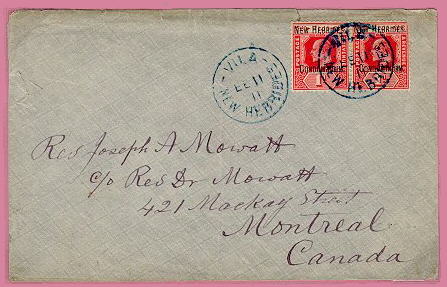 NEW HEBRIDES. NEW HEBRIDES.
CONDOMINIUM. CONDOMINIUM.
POSTAGE
VILA
11
NEW HEBRIDES
VILA
NEW HEBRIDES
Rev Joseph A Mowatt
c/o Rev Dr Mowatt
421 Mackay Street
Montreal
Canada